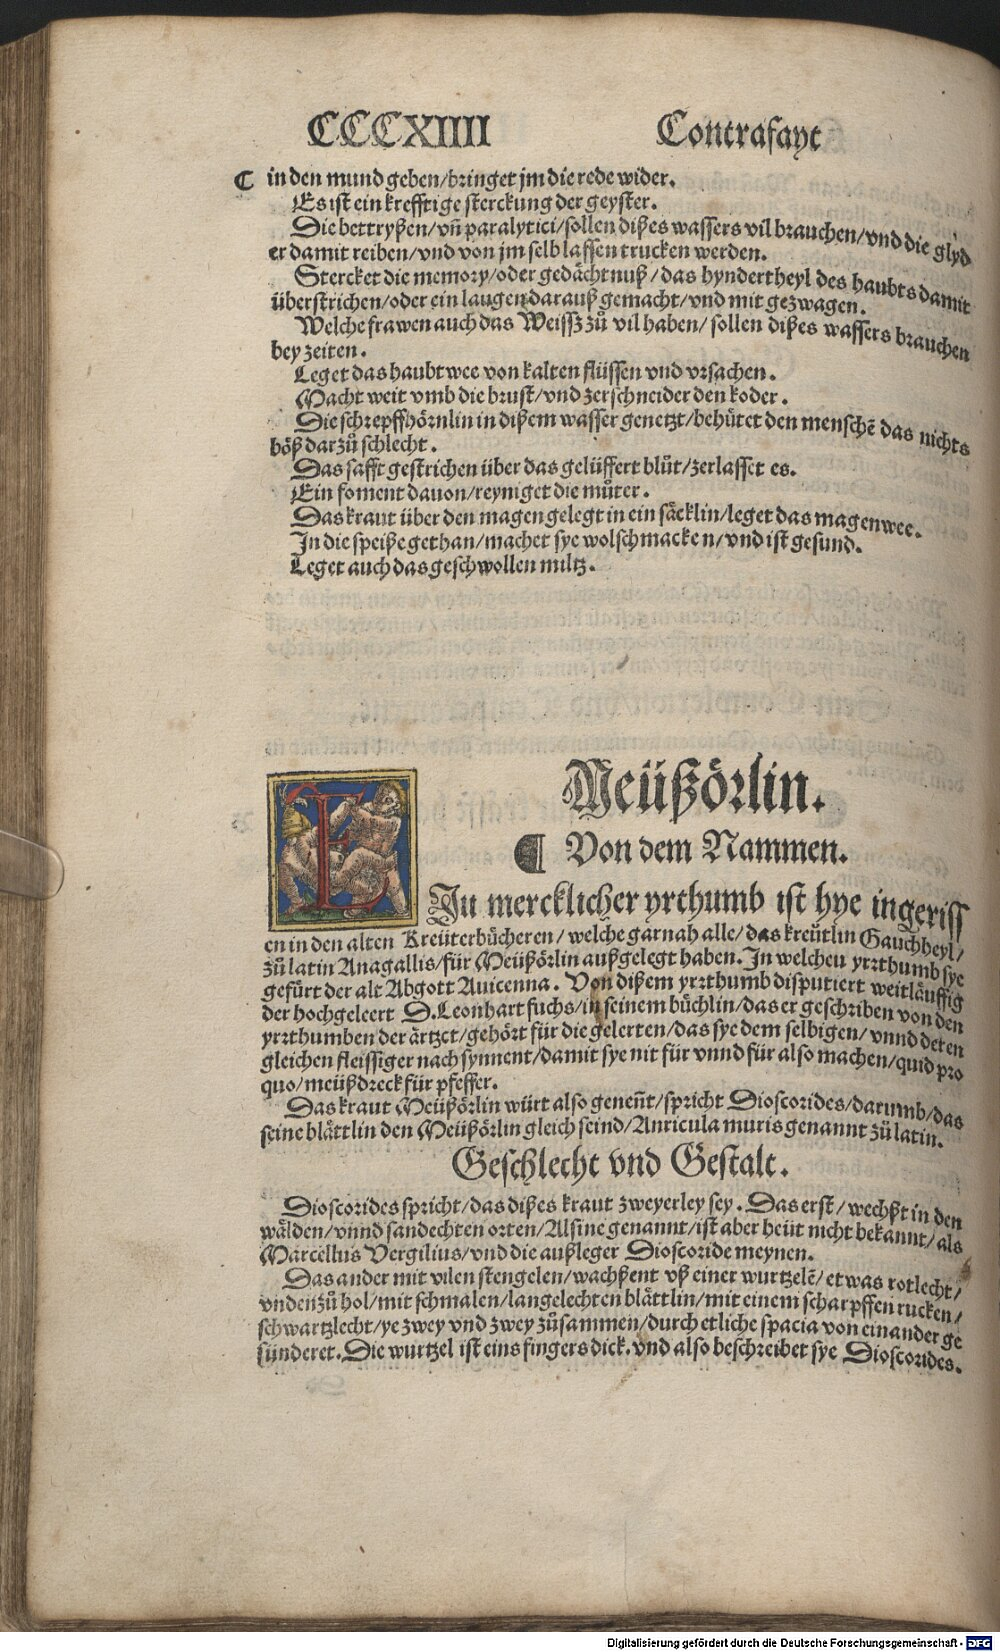 CCCXIIII Contrafayt
C in den mund geben/bringet jm die rede wider.
Es ist ein krefftige sterckung der geyster.
Die bettryßen/vn̄ paralytici/sollen dißes wassers vil brauchen/vnd die glyd
er damit reiben/vnd von jm selb lassen trucken werden.
Stercket die memory/oder gedächtnuß/das hyndertheyl des haubts damit
überstrichen/oder ein laugen darauß gemacht/vnd mit gezwagen.
Welche frawen auch das Weissz zů vil haben/sollen dißes wassers brauchen
bey zeiten.
Leget das haubtwee von kalten flüssen vnd vrsachen.
Macht weit vmb die brust/vnd zerschneider den koder.
Die schrepffhörnlin in dißem wasser genetzt/behütet den menschē das nichts
böß darzů schlecht.
Das safft gestrichen über das gelüffert blůt/zerlasset es.
Ein foment dauon/reyniget die můter.
Das kraut über den magen gelegt in ein säcklin/leget das magenwee.
In die speiße gethan/machet sye wolschmacken/vnd ist gesund.
Leget auch das geschwollen miltz.
Meüßörlin.
¶ Von dem Nammen.
EIn mercklicher yrthumb ist hye ingeriss
en in den alten Kreüterbücheren/welche gar nah alle/das kreütlin Gauchheyl/
zů latin Anagallis/für Meüßörlin außgelegt haben. In welchen yrrthumb sye
gefürt der alt Abgott Auicenna. Von dißem yrrthumb disputiert weitläuffig
der hochgeleert D. Leonhart fuchs/in seinem büchlin/das er geschriben von den
yrrthumben der ärtzet/gehört für die gelerten/das sye dem selbigen/vnnd deren
gleichen fleissiger nach synnent/damit sye nit für vnnd für also machen/quid pro
quo/meüßdreck für pfeffer.
Das kraut Meüßörlin würt also geneñt/spricht Dioscorides/darumb/das
seine blättlin den Meüßörlin gleich seind/Auricula muris genannt zů latin.
Geschlecht vnd Gestalt.
Dioscorides spricht/das dißes kraut zweyerley sey. Das erst/wechßt in den
wälden/vnnd sandechten orten/Alsine genannt/ist aber heüt nicht bekannt/als
Marcellus Vergilius/vnd die außleger Dioscoride meynen.
Das ander mit vilen stengelen/wachßent vß einer wurtzelē/etwas rotlecht/
vnden zů hol/mit schmalen/langelechten blättlin/mit einem scharpffen rucken/
schwartzlecht/ye zwey vnd zwey zůsammen/durch etliche spacia von einander ge
sünderet. Die wurtzel ist eins fingers dick. vnd also beschreibet sye Dioscorides.
Digitalisierung gefördert durch die Deutsche Forschungsgemeinschaft - DFG